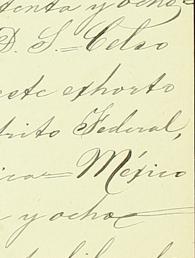 tenta y ocho
D. S. = Celso
este exhorto
trito Federal,
ica = México
y ocho =